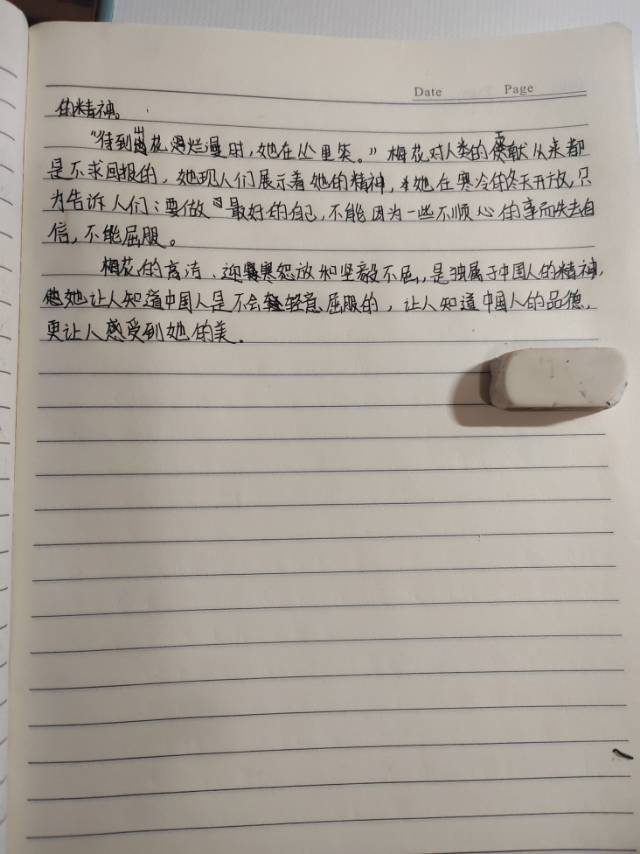 Date Page
的精神。
“待到山花烂漫时,她在丛里笑。”梅花对人类的贡献从来都
是不求回报的,她现人们展示着她的精神,她在寒冷的冬天开放,只
为告诉人们:要做最好的自己,不能因为一些不顺心的事而失去自
信,不能屈服。
梅花的高洁、迎寒怒放和坚毅不屈,是独属于中国人的精神,
她让人知道中国人是不会轻意屈服的,让人知道中国人的品德,
更让人感受到她的美。